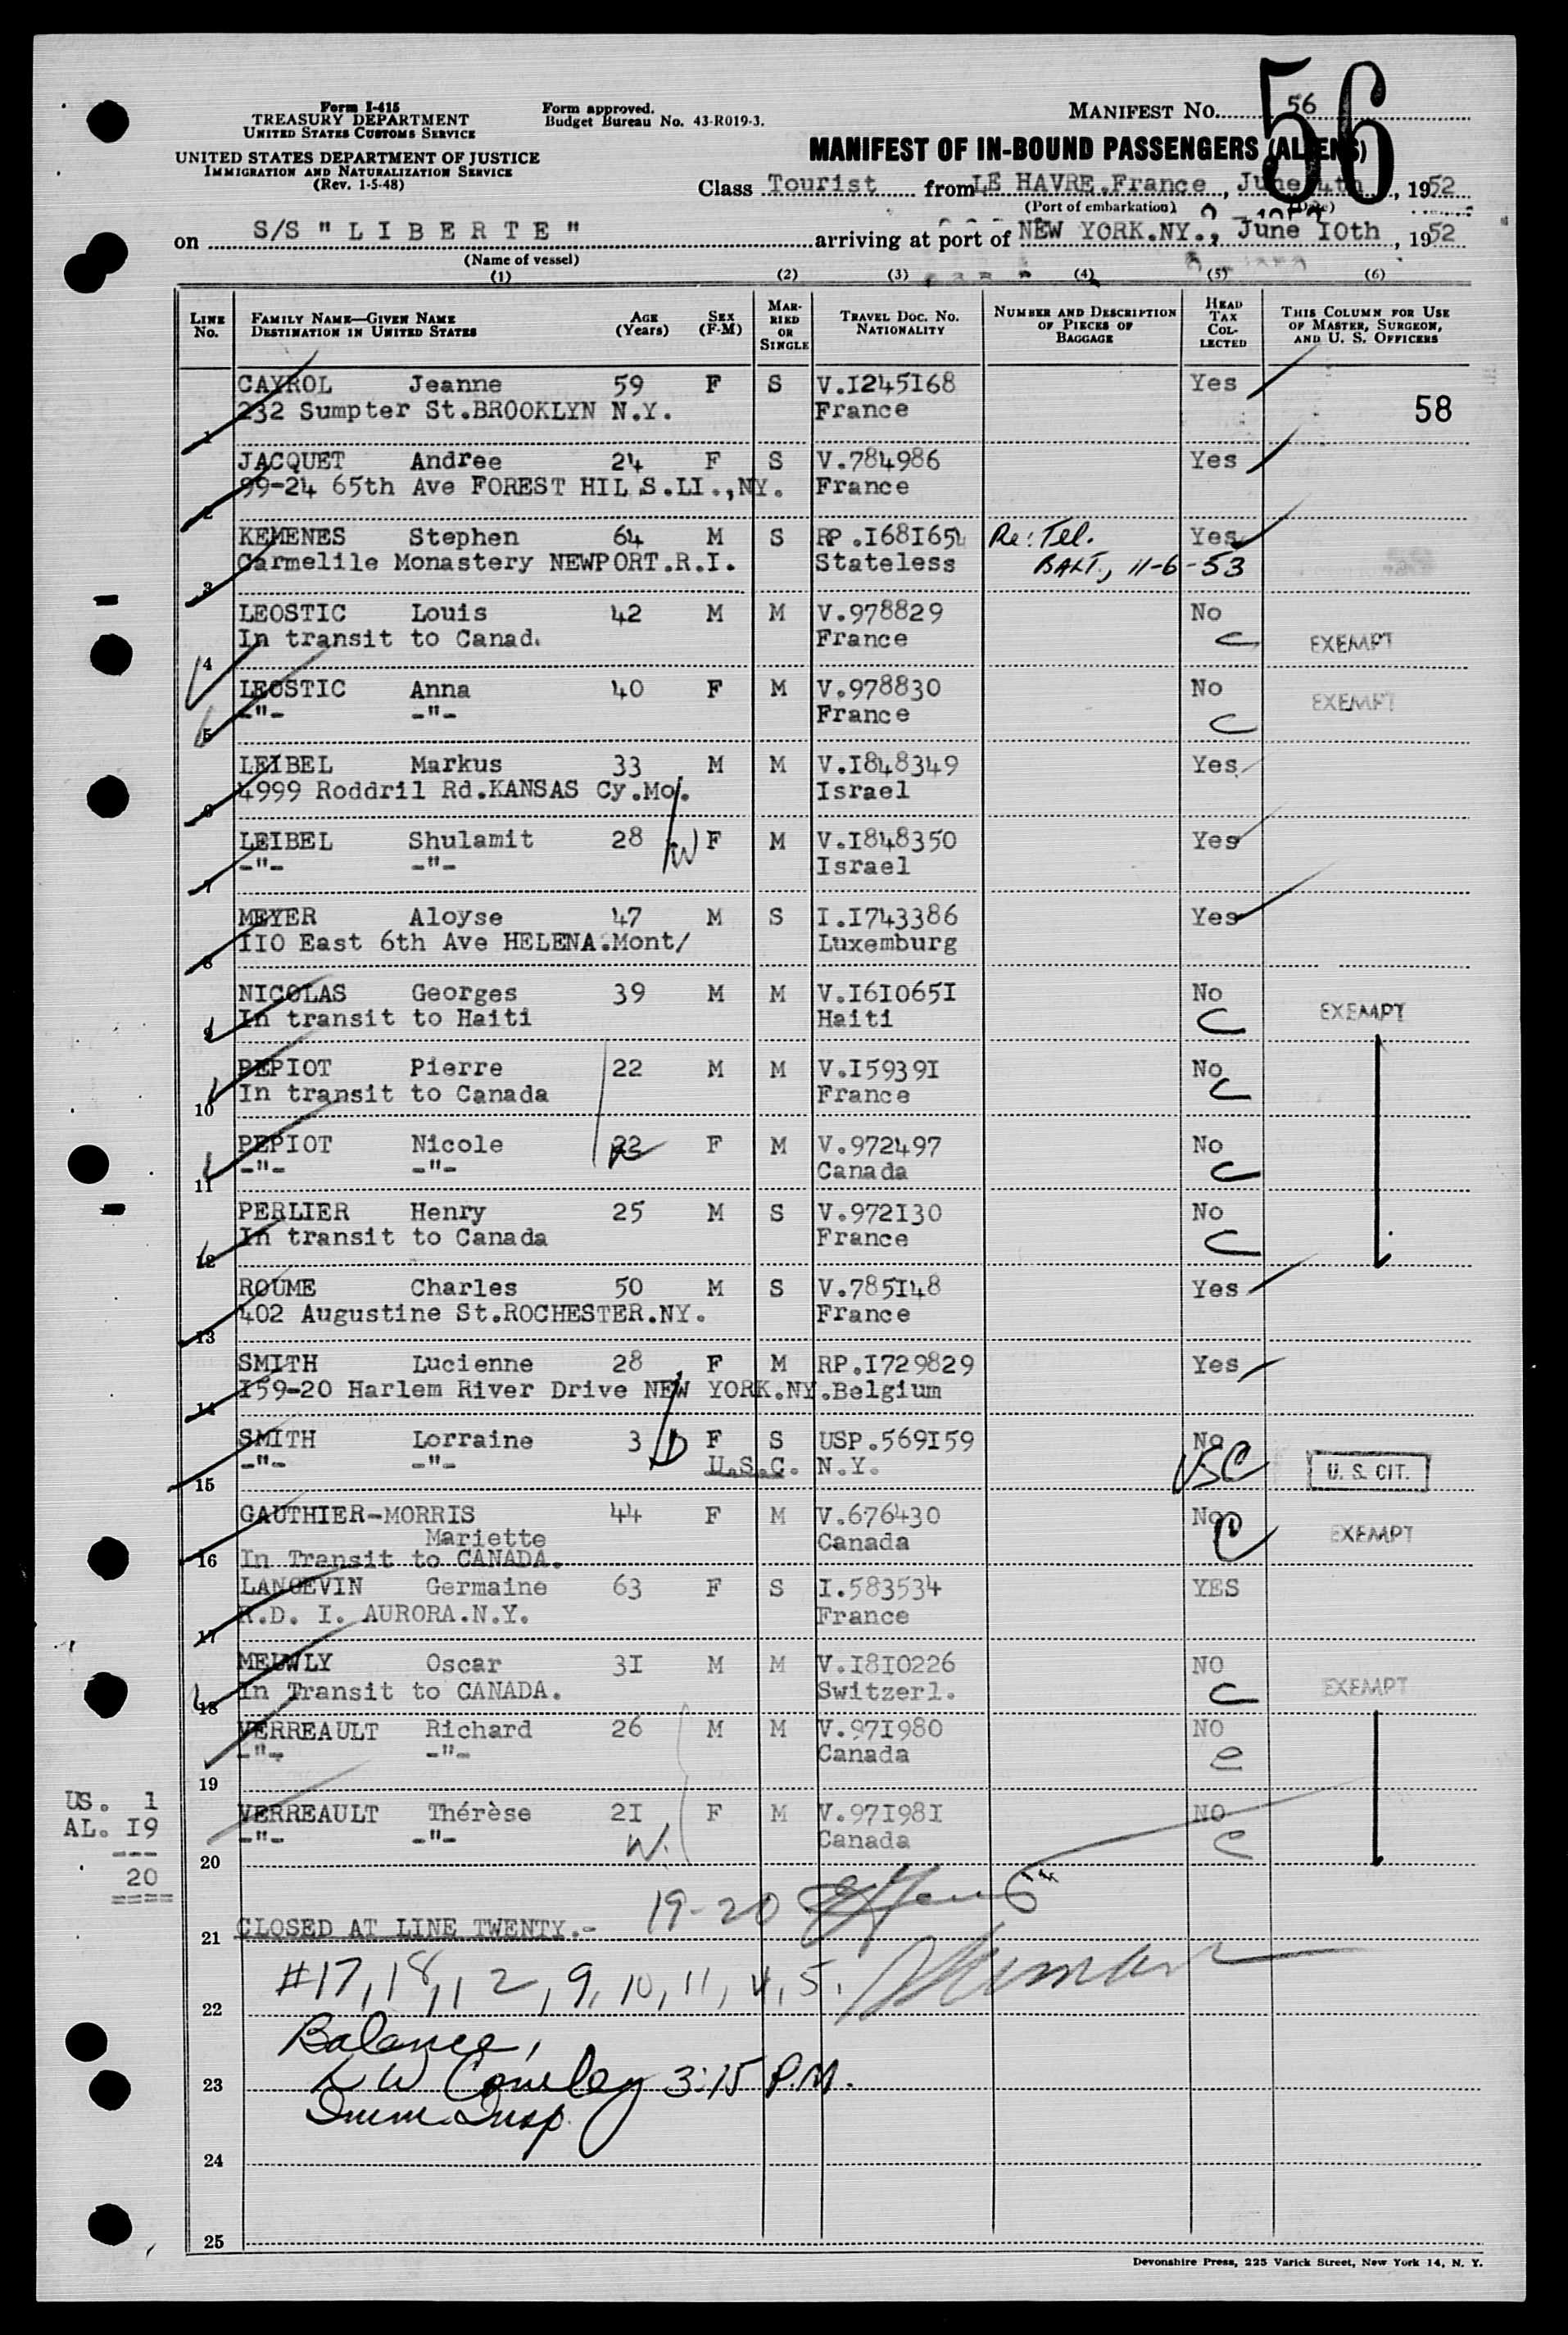 Form I-415
TREASURY DEPARTMENT
UNITED STATES CUSTOMS SERVICE
UNITED STATES DEPARTMENT OF JUSTICE
IMMIGRATION AND NATURALIZATION SERVICE
(Rev. 1-5-48)
Form approved.
Budget Bureau No. 43-R019-3.
MANIFEST No. 56
56
MANIFEST OF IN-BOUND PASSENGERS (ALIENS)
Class Tourist from LE HAVRE.France, June 4th, 1952
(Port of embarkation) (Date)
on S/S " L I B E R T E " arriving at port of NEW YORK.NY., June IOth, 1952
(Name of vessel)
(1) (2) (3) (4) (5) (6)
LINE No. FAMILY NAME—GIVEN NAME DESTINATION IN UNITED STATES AGE (Years) SEX (F-M) MARRIED OR SINGLE TRAVEL DOC. NO. NATIONALITY NUMBER AND DESCRIPTION OF PIECES OF BAGGAGE HEAD TAX COLLECTED THIS COLUMN FOR USE OF MASTER, SURGEON, AND U. S. OFFICERS
CAYROL Jeanne 59 F S V.I245I68 Yes
1 232 Sumpter St.BROOKLYN N.Y. France 58
JACQUET Andree 24 F S V.784986 Yes
2 99-24 65th Ave FOREST HIL S.LI.,NY. France
KEMENES Stephen 64 M S RP.I68I654 Re: Tel. Yes
3 Carmelile Monastery NEWPORT.R.I. Stateless BALT., 11-6-53
LEOSTIC Louis 42 M M V.978829 No
4 In transit to Canad. France C EXEMPT
LEOSTIC Anna 40 F M V.978830 No
5 -"- -"- France C EXEMPT
LEIBEL Markus 33 M M V.I848349 Yes
6 4999 Roddril Rd.KANSAS Cy.Mo. Israel
LEIBEL Shulamit 28 W F M V.I848350 Yes
7 -"- -"- Israel
MEYER Aloyse 47 M S I.I743386 Yes
8 IIO East 6th Ave HELENA.Mont/ Luxemburg
NICOLAS Georges 39 M M V.I6I065I No
9 In transit to Haiti Haiti C EXEMPT
PEPIOT Pierre 22 M M V.I5939I No
10 In transit to Canada France C
PEPIOT Nicole 22 F M V.972497 No
11 -"- -"- Canada C
PERLIER Henry 25 M S V.972I30 No
12 In transit to Canada France C
ROUME Charles 50 M S V.785I48 Yes
13 402 Augustine St.ROCHESTER.NY. France
SMITH Lucienne 28 F M RP.I729829 Yes
14 I59-20 Harlem River Drive NEW YORK.NY.Belgium
SMITH Lorraine 3 D F S USP.569I59 No
15 -"- -"- U.S.C. N.Y. USC U. S. CIT.
GAUTHIER-MORRIS 44 F M V.676430 No
Mariette Canada C EXEMPT
16 In Transit to CANADA.
LANGEVIN Germaine 63 F S I.583534 YES
17 R.D. I. AURORA.N.Y. France
MEUWLY Oscar 3I M M V.I8I0226 NO
18 In Transit to CANADA. Switzerl. C EXEMPT
VERREAULT Richard 26 M M V.97I980 NO
-"- -"- Canada C
19
VERREAULT Thérèse 2I F M V.97I98I NO
-"- -"- W. Canada C
20
US. 1
AL. I9
---
20
====
19-20
21 CLOSED AT LINE TWENTY.-
22 #17, 18, 12, 9, 10, 11, 4, 5.
Balance,
23 L W Cowley 3:15 P.M.
Imm. Insp.
24
25
Devonshire Press, 225 Varick Street, New York 14, N. Y.